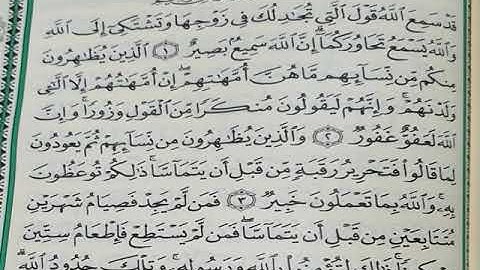 قَدْ سَمِعَ ٱللَّهُ قَوْلَ ٱلَّتِى تُجَٰدِلُكَ فِى زَوْجِهَا وَتَشْتَكِىٓ إِلَى ٱللَّهِ
وَٱللَّهُ يَسْمَعُ تَحَاوُرَكُمَآ ۚ إِنَّ ٱللَّهَ سَمِيعٌۢ بَصِيرٌ ١ ٱلَّذِينَ يُظَٰهِرُونَ
مِنكُم مِّن نِّسَآئِهِم مَّا هُنَّ أُمَّهَٰتِهِمْ ۖ إِنْ أُمَّهَٰتُهُمْ إِلَّا ٱلَّٰٓـِٔى
وَلَدْنَهُمْ ۚ وَإِنَّهُمْ لَيَقُولُونَ مُنكَرًا مِّنَ ٱلْقَوْلِ وَزُورًا ۚ وَإِنَّ
ٱللَّهَ لَعَفُوٌّ غَفُورٌ ٢ وَٱلَّذِينَ يُظَٰهِرُونَ مِن نِّسَآئِهِمْ ثُمَّ يَعُودُونَ
لِمَا قَالُوا۟ فَتَحْرِيرُ رَقَبَةٍ مِّن قَبْلِ أَن يَتَمَآسَّا ۚ ذَٰلِكُمْ تُوعَظُونَ
بِهِۦ ۚ وَٱللَّهُ بِمَا تَعْمَلُونَ خَبِيرٌ ٣ فَمَن لَّمْ يَجِدْ فَصِيَامُ شَهْرَيْنِ
مُتَتَابِعَيْنِ مِن قَبْلِ أَن يَتَمَآسَّا ۖ فَمَن لَّمْ يَسْتَطِعْ فَإِطْعَامُ سِتِّينَ
ذَٰلِكَ لِتُؤْمِنُوا۟ بِٱللَّهِ وَرَسُولِهِۦ ۚ وَتِلْكَ حُدُودُ ٱللَّهِ ۗ